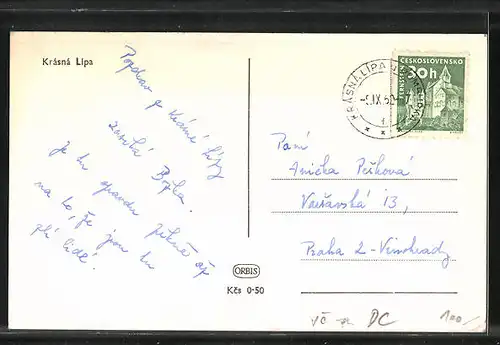 Krásná Lípa
Pozdrav z Krásné Lípy
zasílá
Je tu opravdu pěkně až
na to, že jsou tu
zlí lidé!
ORBIS
Kčs 0·50
KRÁSNÁ LÍPA
ČESKOSLOVENSKO
30h
Paní
Anička Pešková
Varšavská 13,
Praha 2 - Vinohrady
DC
100/-